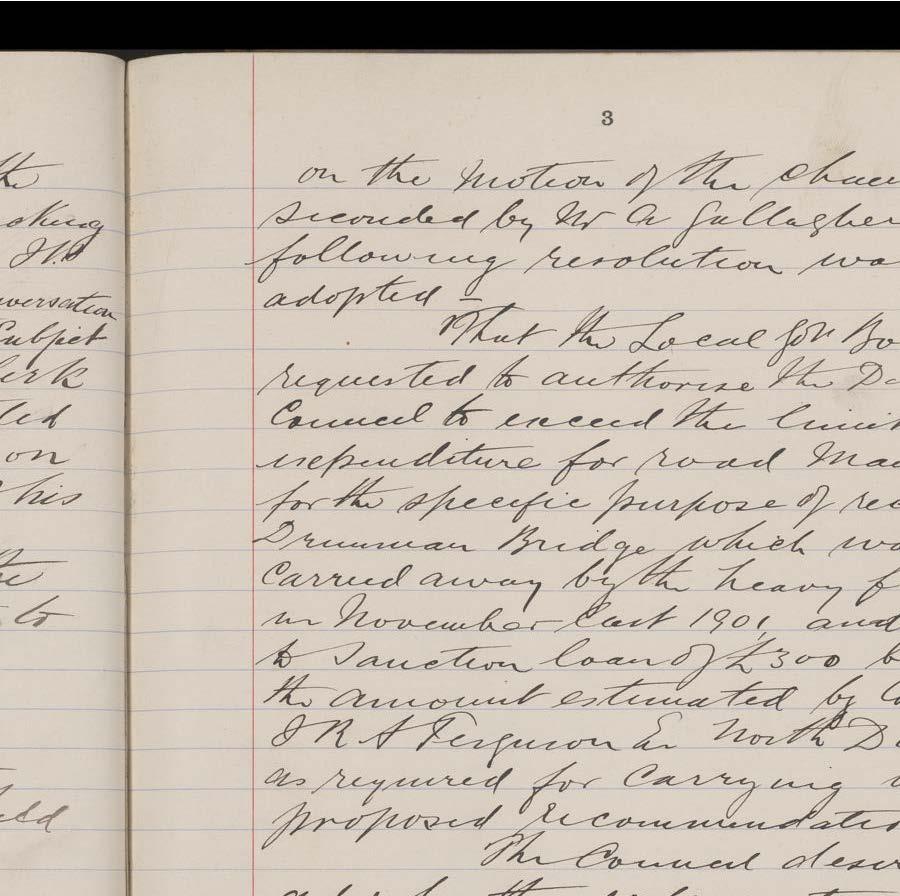 the
asking
nversation
Subject
lerk
ted
on
this
the
to
eld
3
on the Motion of the Chair
seconded by Mr A Gallagher
following resolution wa
adopted -
That the Local Gov Bo
requested to authorise the D
Council to exceed the limit
expenditure for road Ma
for the specific purpose of rec
Drumman Bridge which wa
Carried away by the heavy f
in November last 1901 and
to Sanction loan of £300 b
the amount estimated by Co
J R A Ferguson Er North D
as required for Carrying
proposed recommendatio
The Council desir